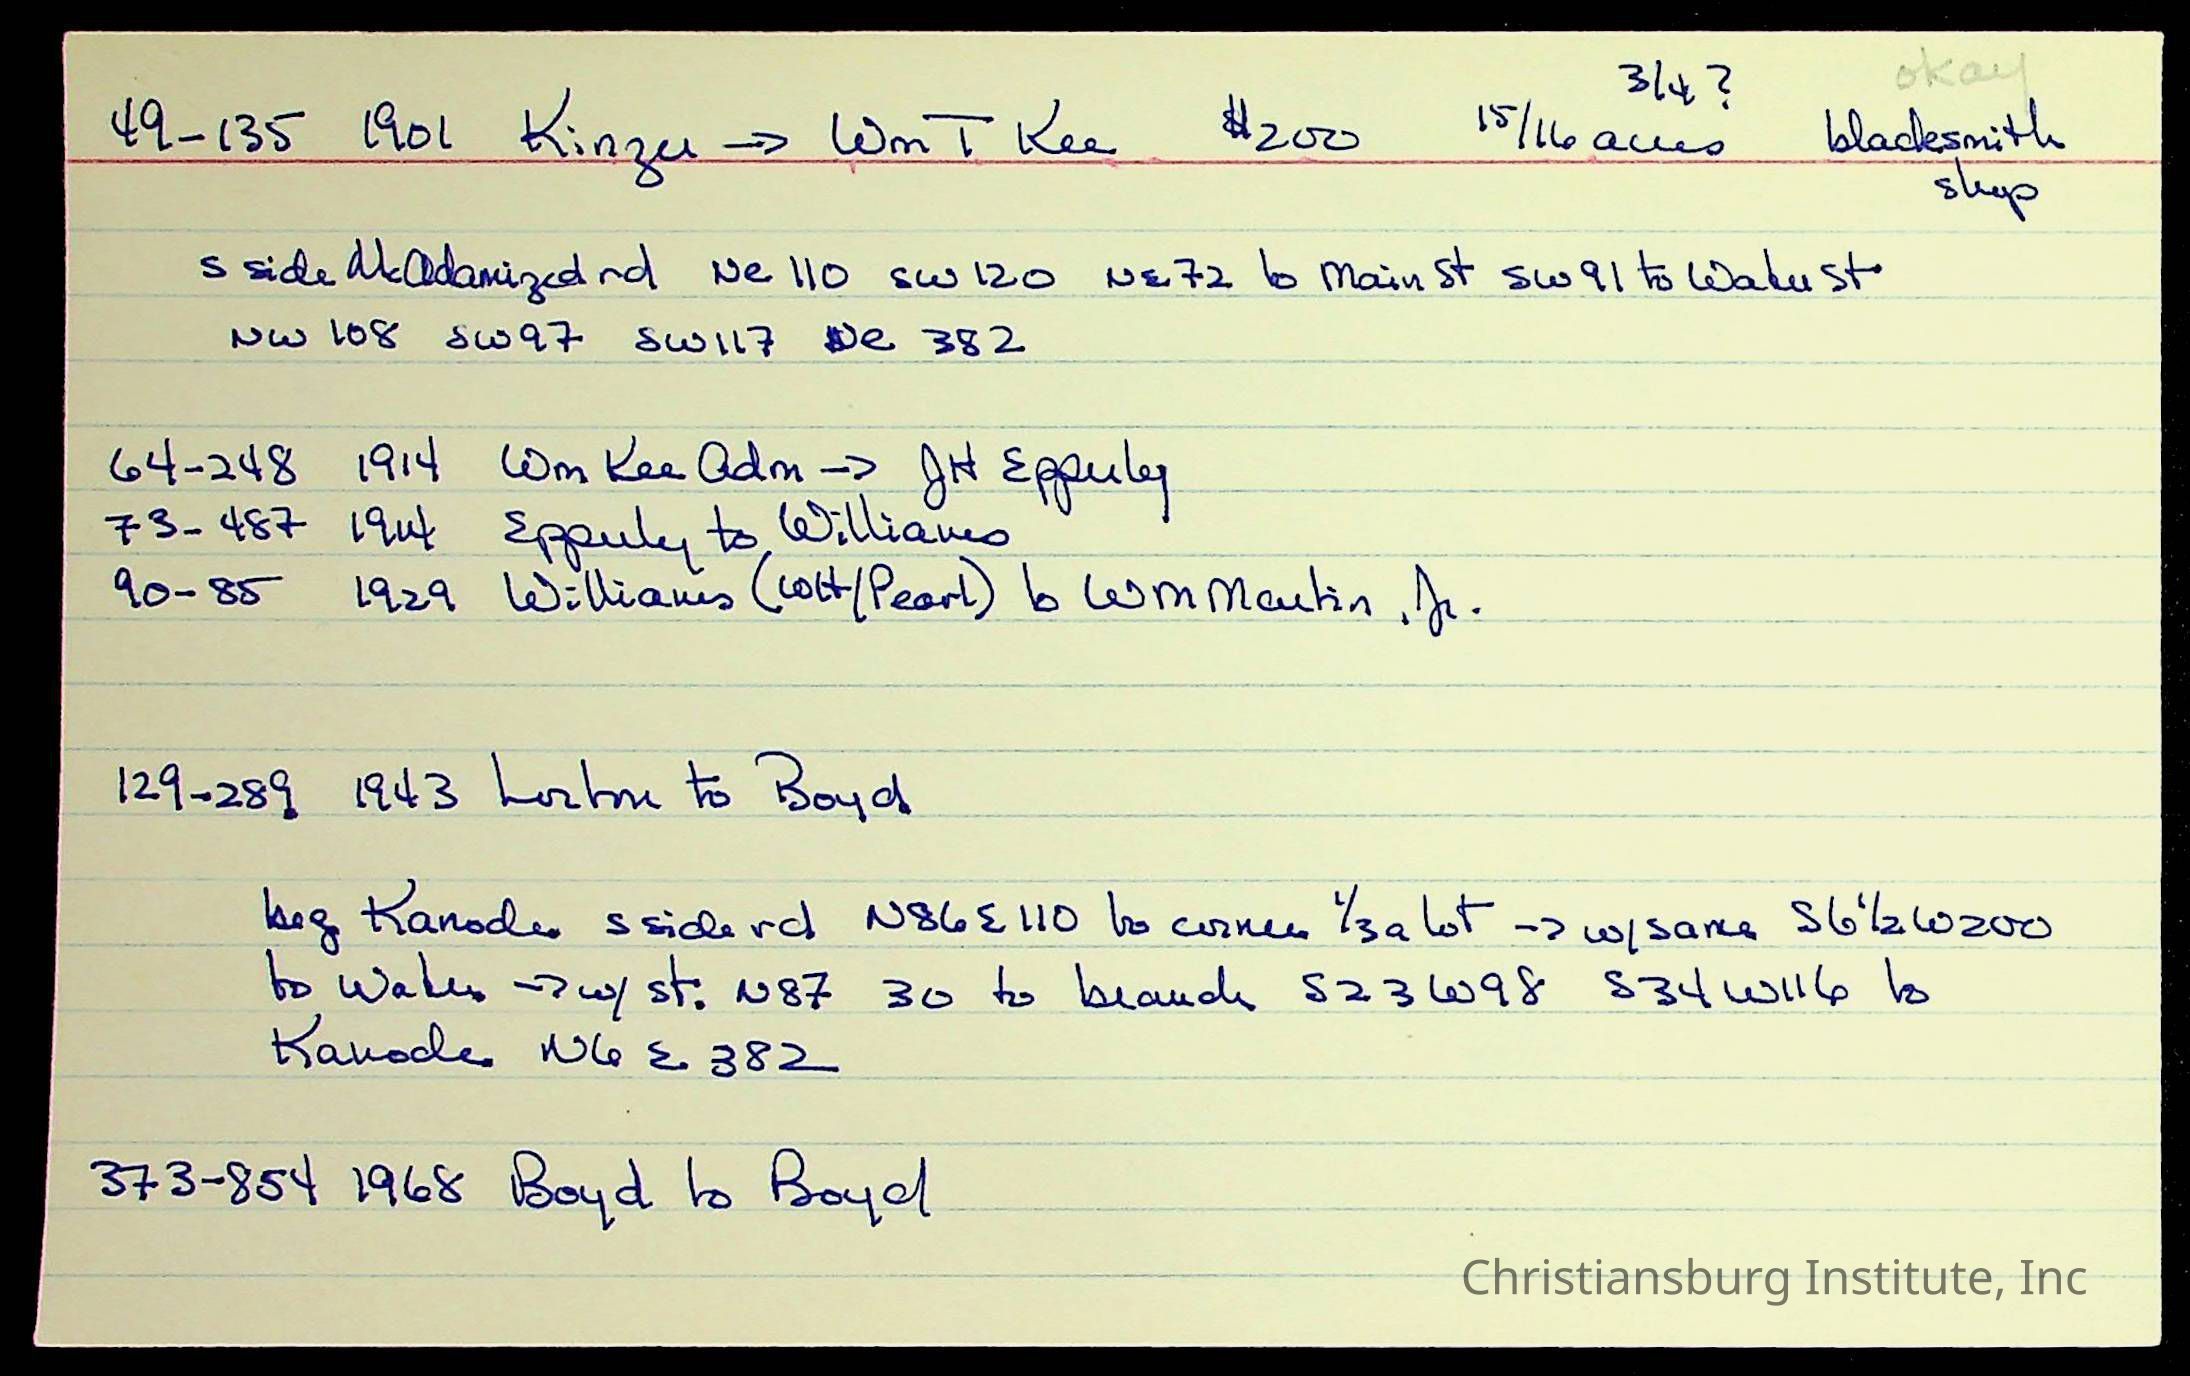 okay
3/4 ?
49-135 1901 Kinzer -> Wm T Kee $200 15/16 acres blacksmith
shop
S side McAdamized rd NE 110 SW 120 NE 72 to Main St SW 91 to Water St
NW 108 SW 97 SW 117 NE 382
64-248 1914 Wm Kee Adm -> JH Epperley
73-487 1914 Epperley to Williams
90-85 1929 Williams (WH/Pearl) to WM Martin, Jr.
129-289 1943 Lorton to Boyd
beg Kanode S side rd N86E110 to corner 1/3 a lot -> w/same S6 1/2 W200
to Water -> w/ st. N87 30 to branch S23W98 S34W116 to
Kanode N6E 382
373-854 1968 Boyd to Boyd
Christiansburg Institute, Inc